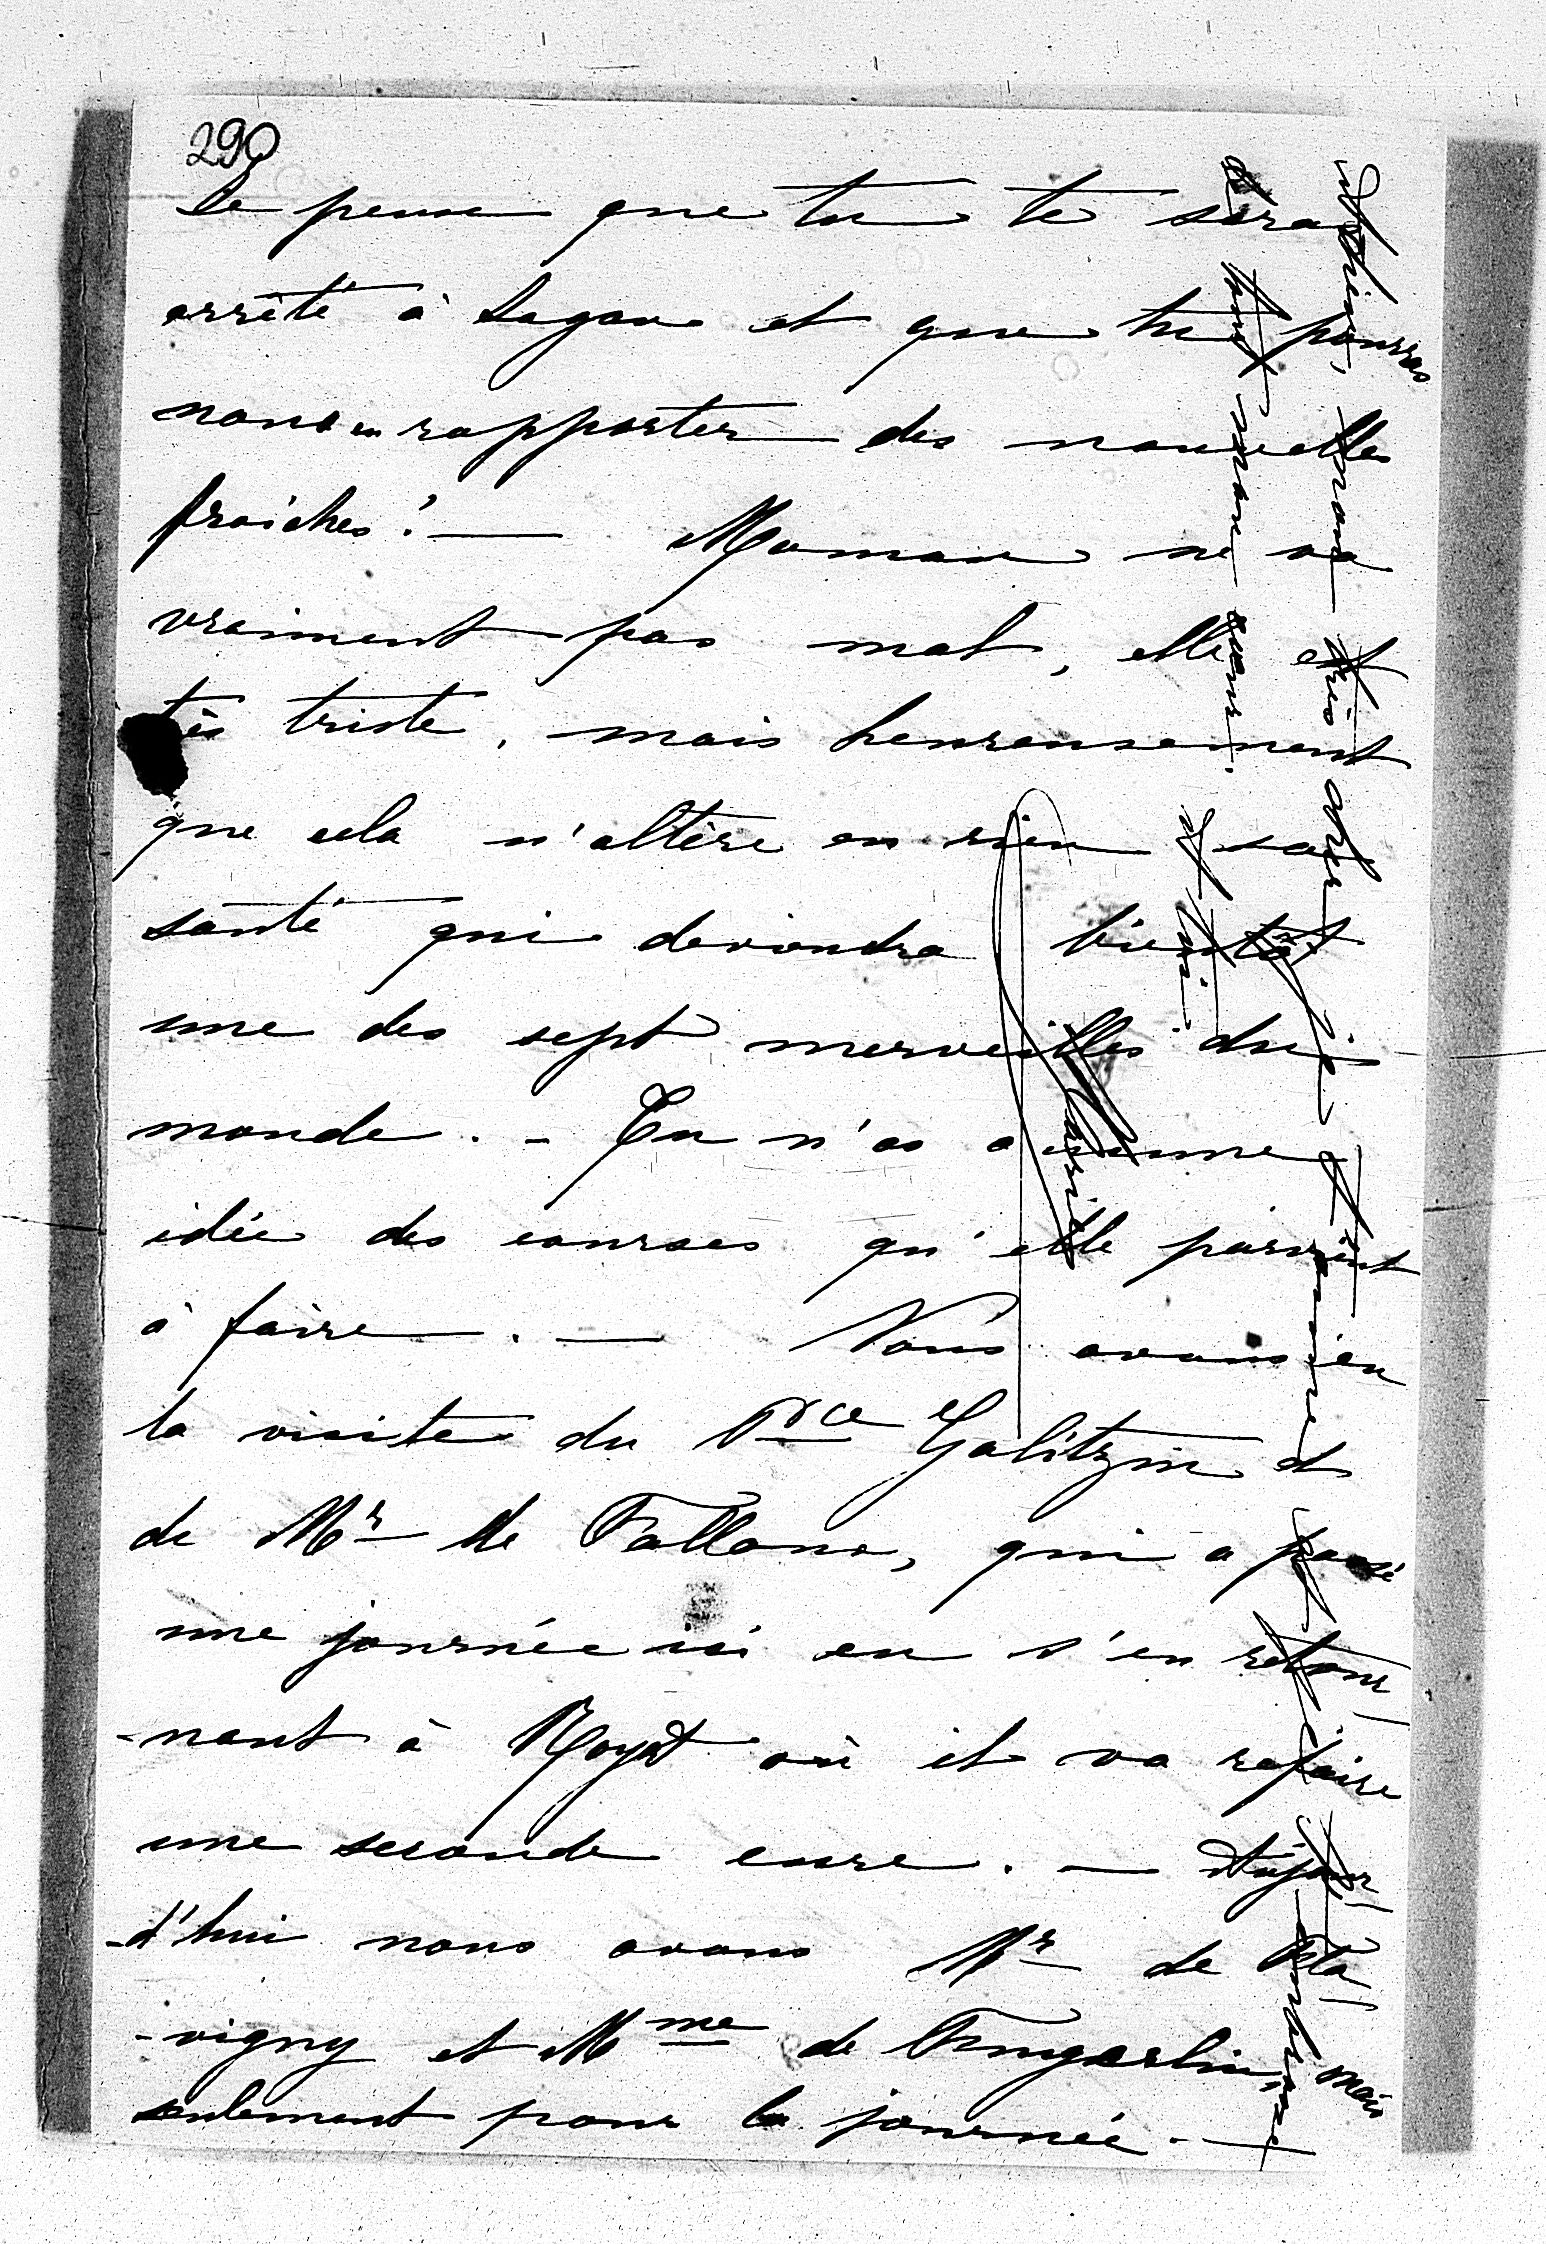 290
Je pense que tu te seras
arrêté à Sagan et que tu pourras
nous en rapporter des nouvelles
fraîches! — Maman ne va
vraiment pas mal, elle est
très triste, mais heureusement
que cela n'altère en rien sa
santé qui deviendra bientôt
une des sept merveilles du
monde. - Tu n'as aucune
idée des courses qu'elle parvient
à faire. — Nous avons eu
la visite du Pce Galitzin et
de Mr de Fallans, qui a passé
une journée ici en s'en retour
-nant à Royat où il va refaire
une seconde cure. — Aujour
-d'hui nous avons Mr de Fla
-vigny et Mme de Fingerlin, mais
seulement pour la journée. —
Adieu, mon très cher je t'aime
et t'embrasse
de tout mon cœur.